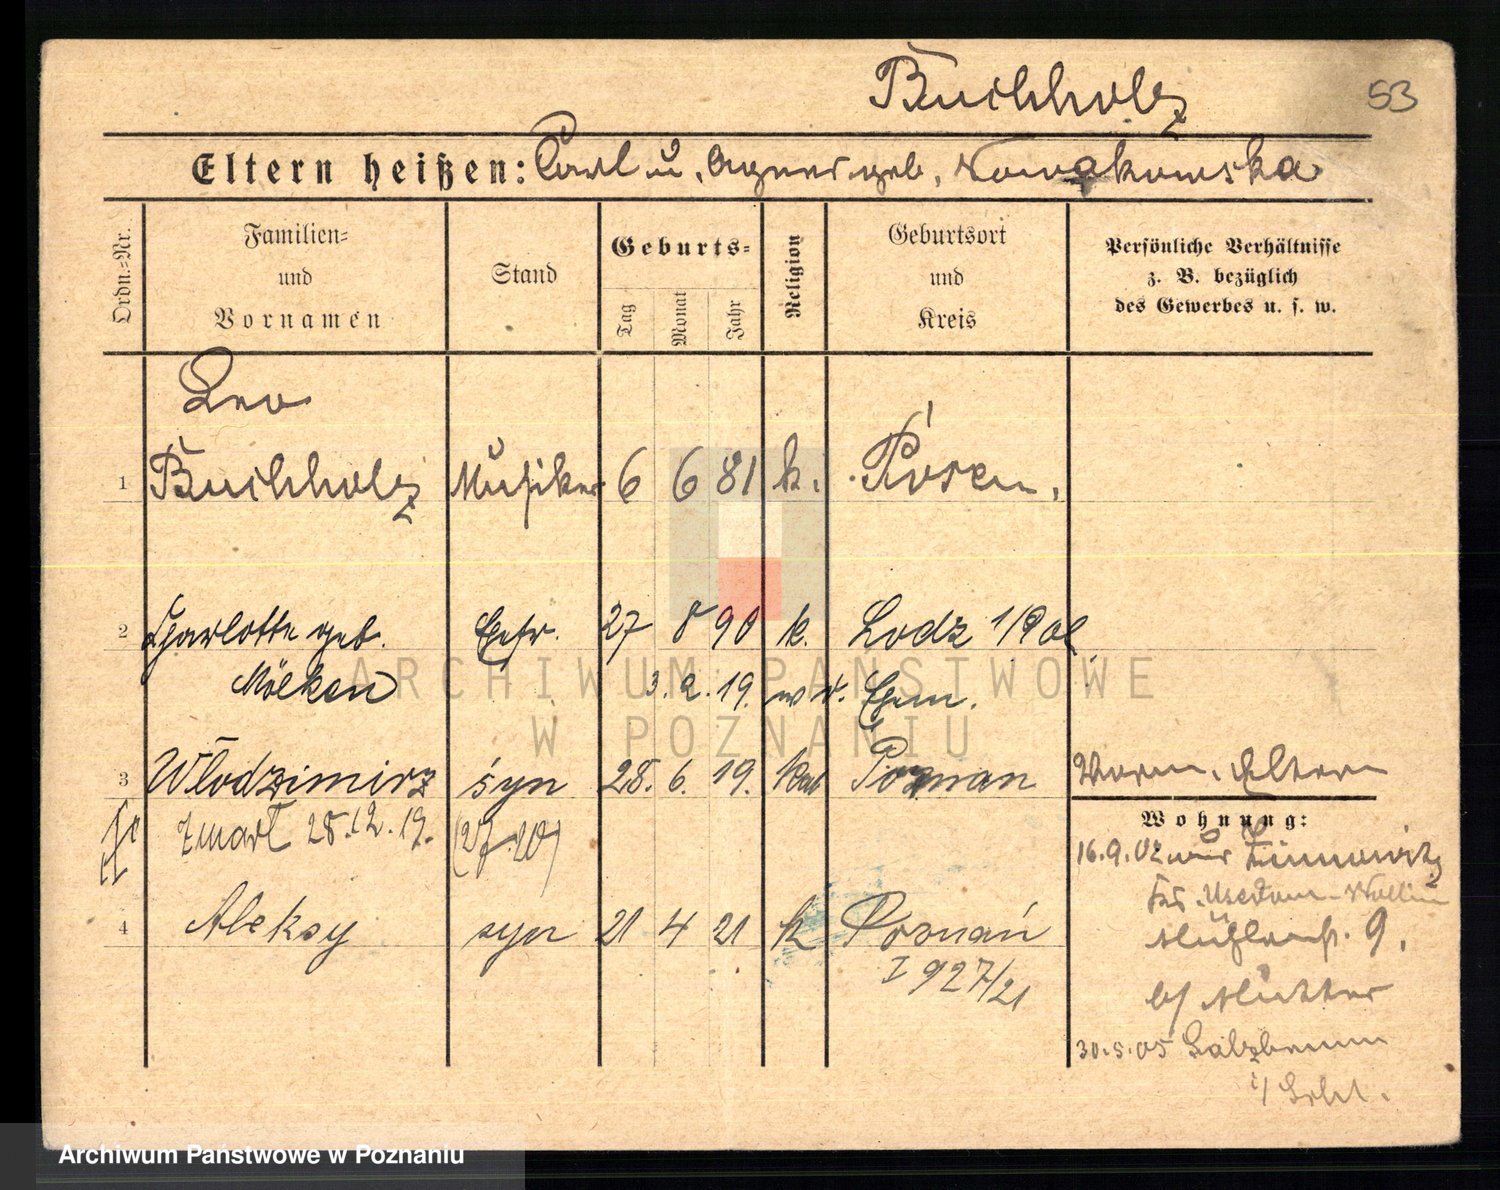 Buchholz
53
Eltern heißen: Carl u. Agnes geb. Nowakowska
Ordn.-Nr.
Familien-
und
Vornamen
Stand
Geburts-
Tag
Monat
Jahr
Religion
Geburtsort
und
Kreis
Persönliche Verhältnisse
z. B. bezüglich
des Gewerbes u. s. w.
Leo
1 Buchholz Musiker 6 6 81 k. Posen.
2 Charlotte geb. Ehefr. 27 8 90 k. Lodz
Mölken 3.2.19.
3 Włodzimirz syn 28. 6. 19. kat Poznan Vorm. Eltern
zmarł 28.12.19.
Wohnung:
16.9.02 Zinnowitz
Usedom-Wollin
4 Aleksy syn 21 4 21 k Poznań 9.
I 927/21
b/ Mutter
30.5.05 Salzbrunn
i/ Schl.
ARCHIWUM PAŃSTWOWE
W POZNANIU
Archiwum Państwowe w Poznaniu